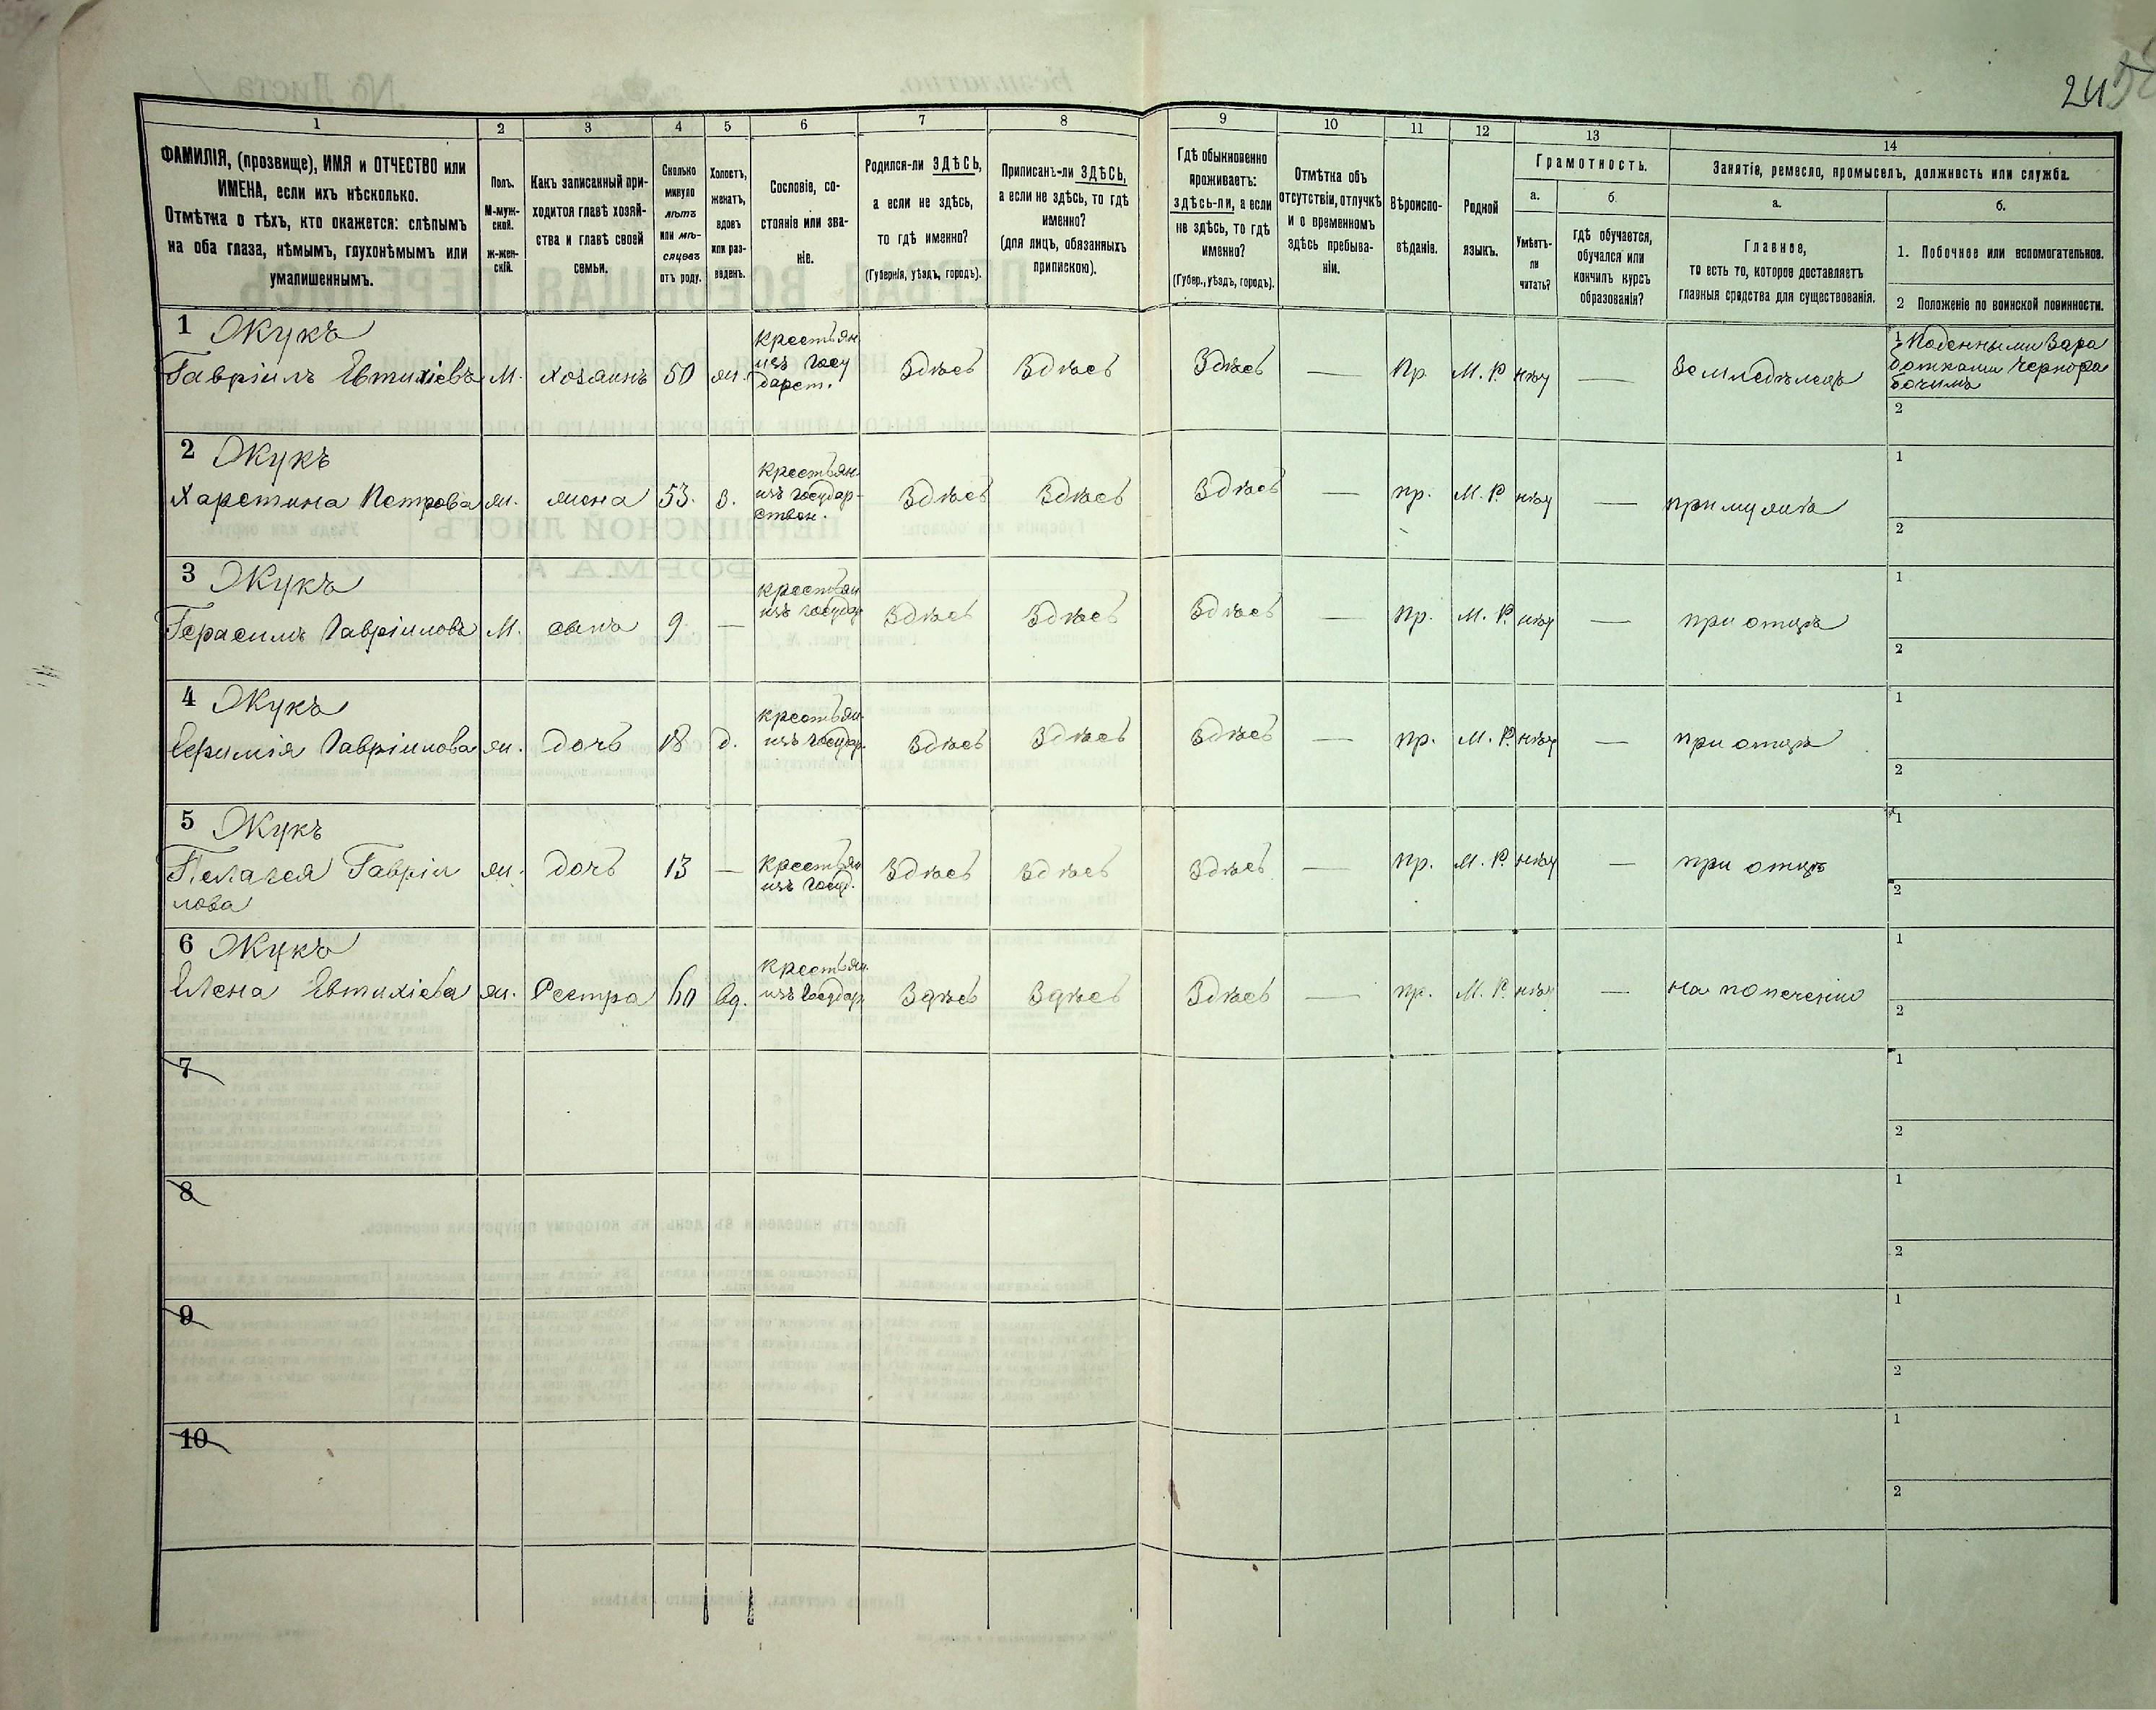 24
1
2
3
4
5
6
7
8
9
10
11
12
13
14
ФАМИЛІЯ, (прозвище), ИМЯ и ОТЧЕСТВО или
ИМЕНА, если ихъ нѣсколько.
Отмѣтка о тѣхъ, кто окажется: слѣпымъ
на оба глаза, нѣмымъ, глухонѣмымъ или
умалишеннымъ.
Полъ.
М-муж-
ской.
ж-жен-
скій.
Какъ записанный при-
ходится главѣ хозяй-
ства и главѣ своей
семьи.
Сколько
минуло
лѣтъ
или мѣ-
сяцевъ
отъ роду.
Холостъ,
женатъ,
вдовъ
или раз-
веденъ.
Сословіе, со-
стояніе или зва-
ніе.
Родился-ли ЗДѢСЬ,
а если не здѣсь,
то гдѣ именно?
(Губернія, уѣздъ, городъ).
Приписанъ-ли ЗДѢСЬ,
а если не здѣсь, то гдѣ
именно?
(для лицъ, обязанныхъ
припискою).
Гдѣ обыкновенно
проживаетъ:
здѣсь-ли, а если
не здѣсь, то гдѣ
именно?
(Губер., уѣздъ, городъ).
Отмѣтка объ
отсутствіи, отлучкѣ
и о временномъ
здѣсь пребыва-
ніи.
Вѣроиспо-
вѣданіе.
Родной
языкъ.
Грамотность.
а.
б.
Умѣетъ-
ли
читать?
гдѣ обучается,
обучался или
кончилъ курсъ
образованія?
Занятіе, ремесло, промыселъ, должность или служба.
а.
б.
Главное,
то есть то, которое доставляетъ
главныя средства для существованія.
1. Побочное или вспомогательное.
2 Положеніе по воинской повинности.
1 Жукъ
Гавріилъ Евтихіевъ М. хозяинъ 50 ж. крестьян. изъ госу дарст. Здѣсь Здѣсь Здѣсь — Пр. М. Р. нѣт — Земледѣлецъ 1 Поденными Зара
ботками Чернора
бочимъ
2
2 Жукъ
Харетина Петрова ж. жена 53. З. крестьян. изъ государ- ствен. Здѣсь Здѣсь Здѣсь — пр. М. Р. нѣт — при мужѣ
1
2
3 Жукъ
Герасимъ Гавріиловъ М. сынъ 9 — крестьян изъ государ Здѣсь Здѣсь Здѣсь — Пр. М. Р. нѣт — при отцѣ
1
2
4 Жукъ
Ефимія Гавріилова ж. дочь 18 д. крестьян. изъ государ. Здѣсь Здѣсь Здѣсь — пр. М. Р. нѣт — при отцѣ
1
2
5 Жукъ
Пелагея Гавріи
лова ж. дочь 13 — крестьян изъ госуд. Здѣсь здѣсь Здѣсь — пр. М. Р. нѣт — при отцѣ
1
2
6 Жукъ
Елена Евтихіева ж. Сестра 60 вд. крестьян. изъ государ Здѣсь Здѣсь Здѣсь — пр. М. Р. нѣт — на попеченіи
1
2
7
1
2
8
1
2
9
1
2
10
1
2